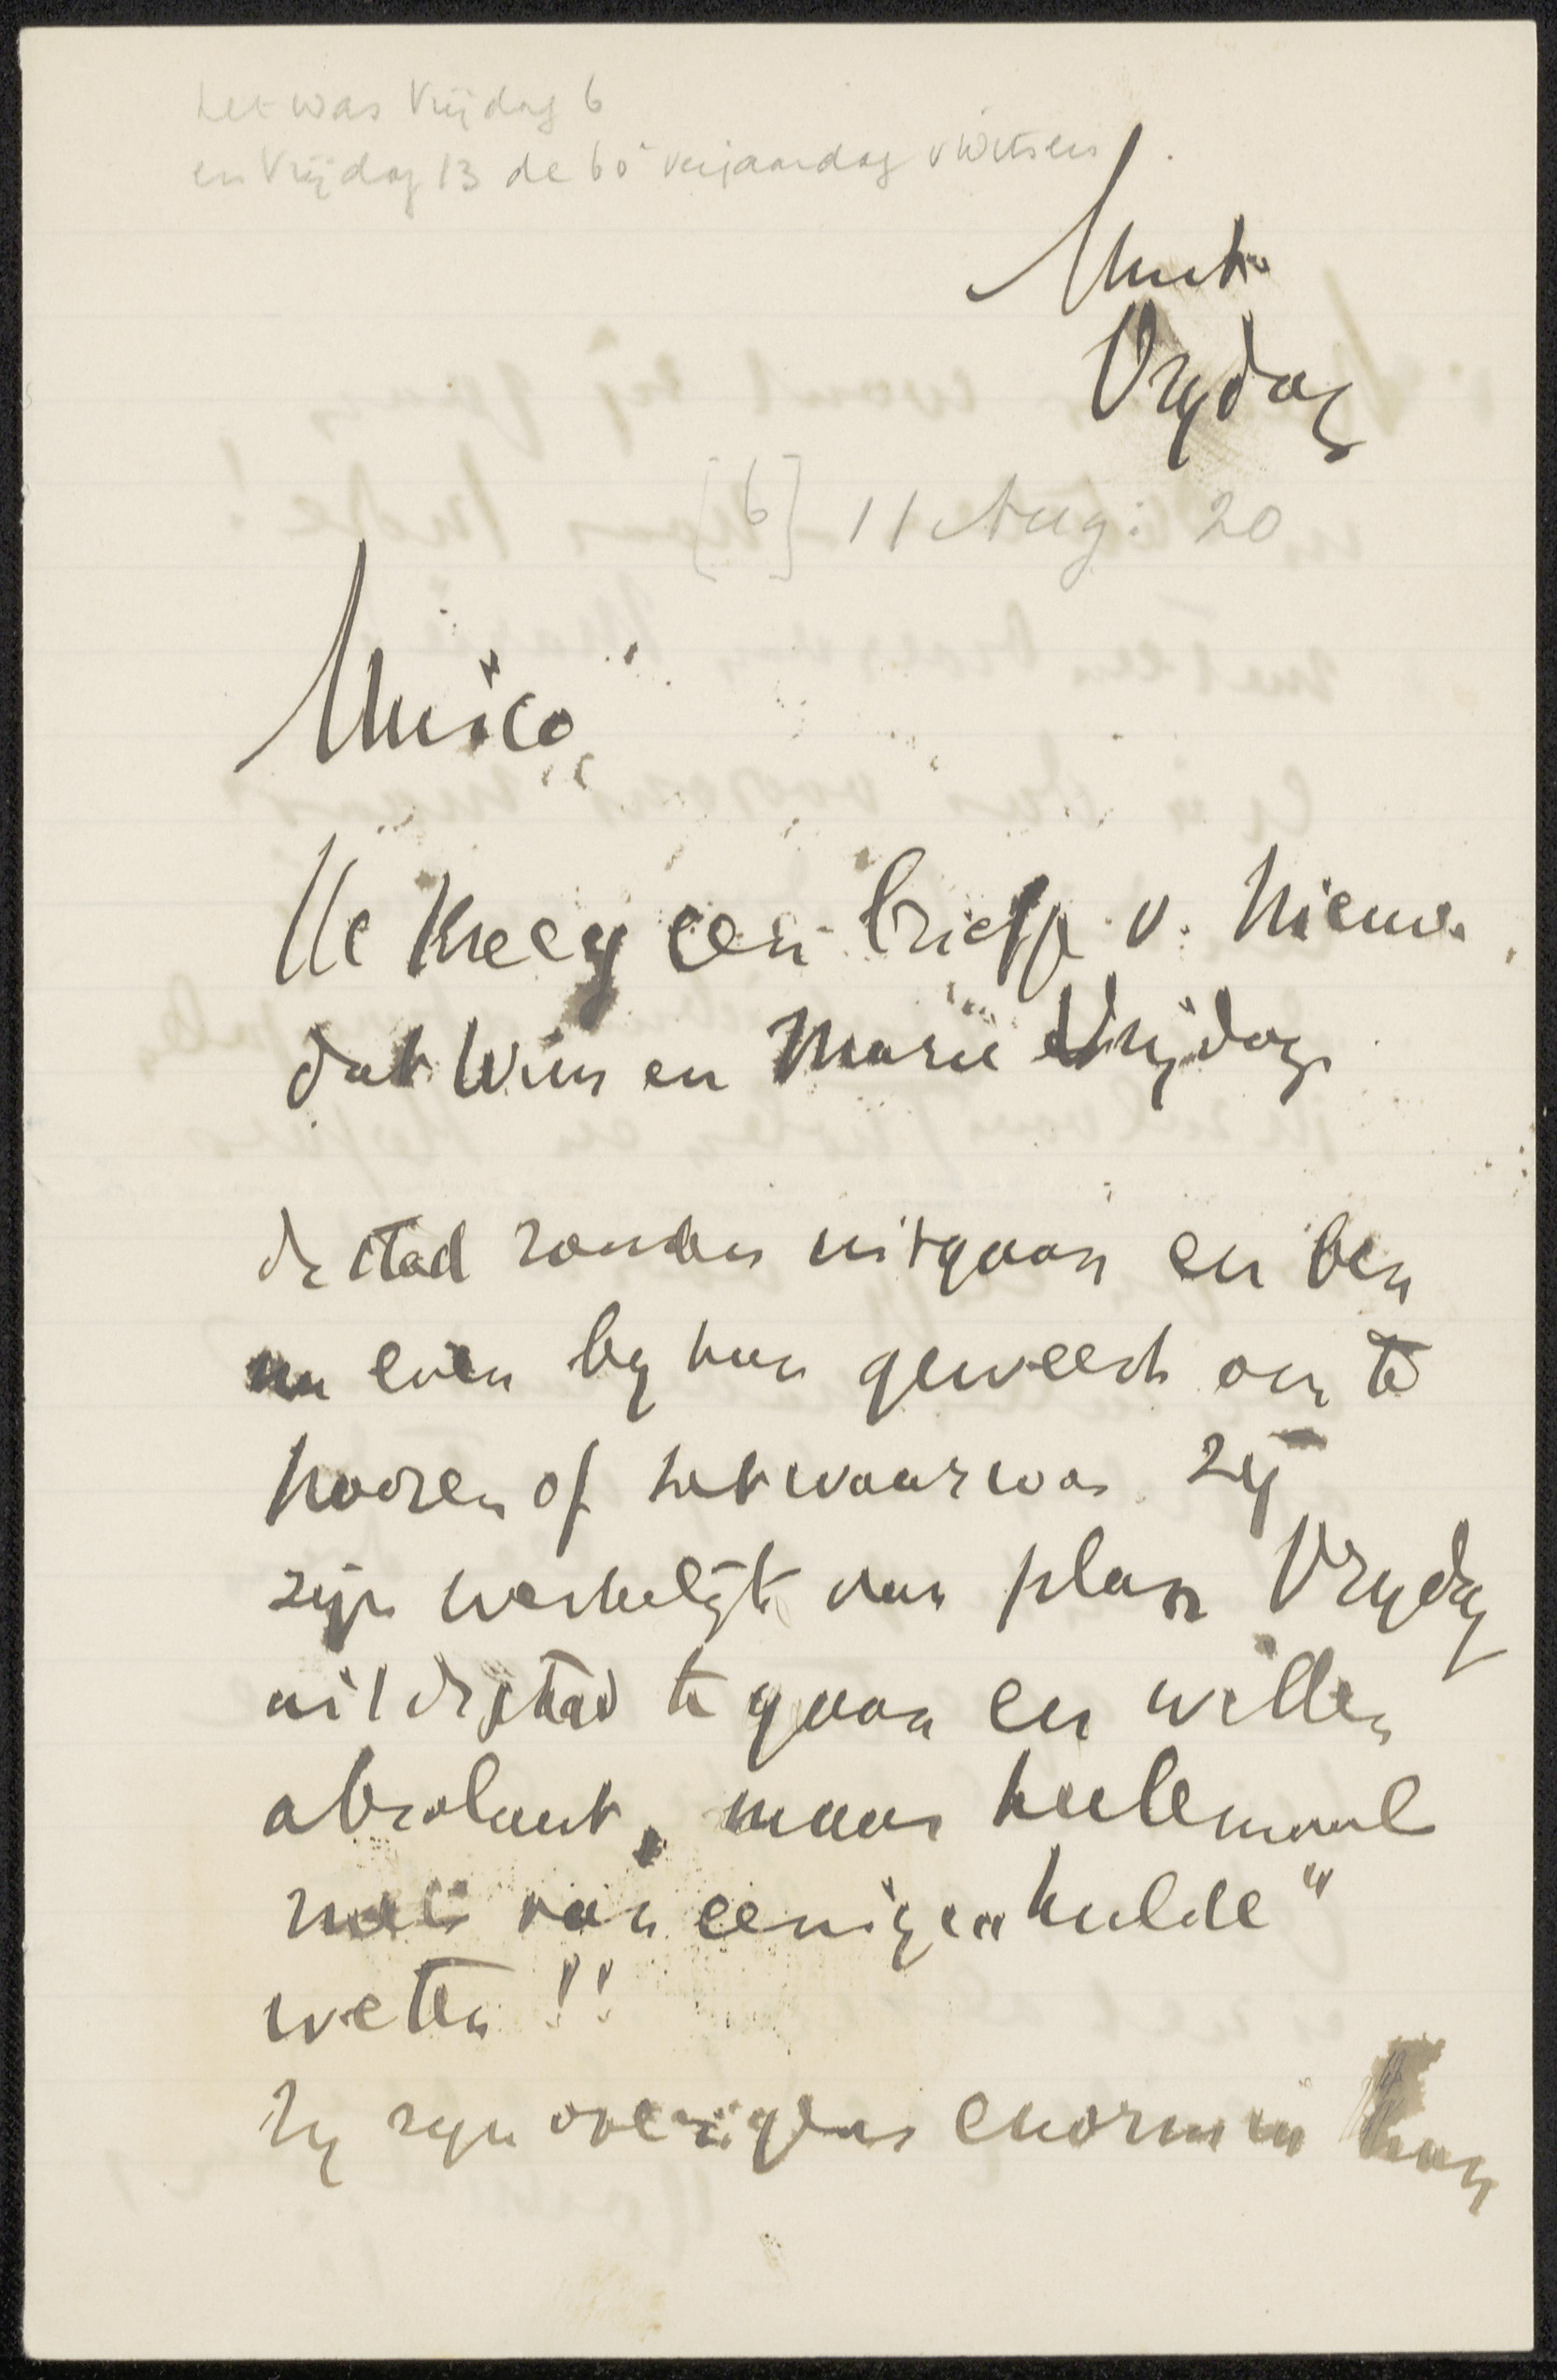 het was Vrijdag 6
en Vrijdag 13 de 60e verjaardag v Witsen
Vrydag
[6] 11 Aug: 20
Musico,
Ik kreeg een briefje v. Nieuw.
dat Wim en Marie Vrijdag
de stad zouden uitgaan en ben
nu even by hun geweest om te
hooren of het waar was. Zij
zijn werkelijk van plan Vrydag
uit de stad te gaan en willen
absoluut, maar heelemaal
niets van eenige „hulde"
weten!!
Zy zyn overigens enorm in hun